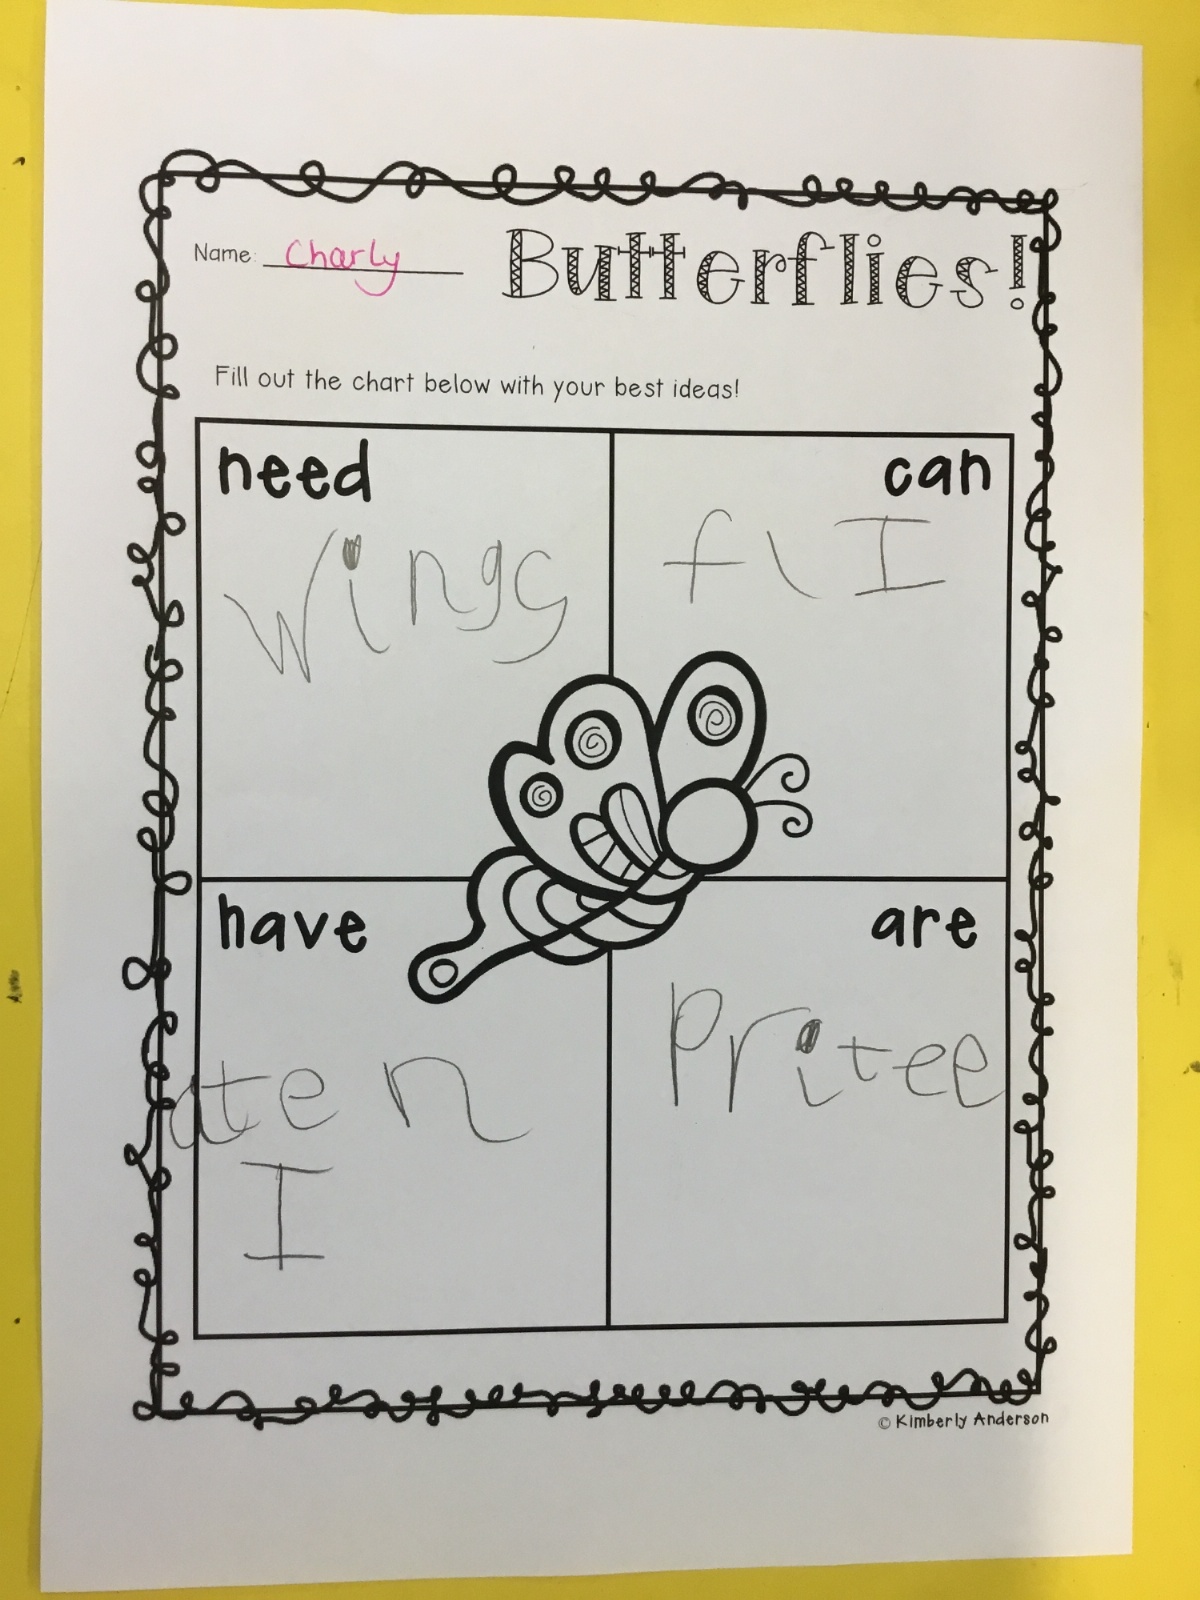 Name: Charly
Butterflies!
Fill out the chart below with your best ideas!
need
wings
can
fl I
have
aten
I
are
Pritee
© Kimberly Anderson